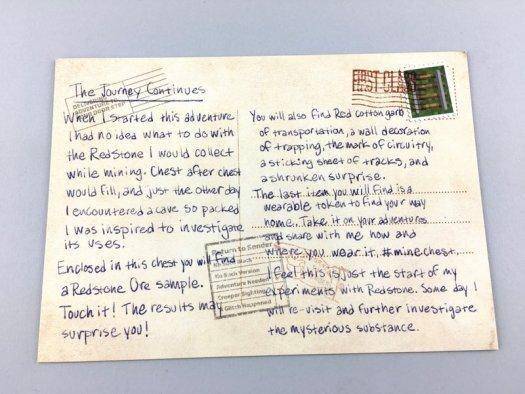 The Journey Continues
FIRST CLASS
DELIVERING
ADVENTURE TO
YOUR DOOR STEP
When I started this adventure
I had no idea what to do with
the RedStone I would collect
while mining. Chest after chest
would fill, and just the other day
I encountered a cave so packed
I was inspired to investigate
its uses.
Enclosed in this chest you will find
a Redstone Ore sample.
Touch it! The results may
surprise you!
You will also find Red cotton garb
of transportation, a wall decoration
of trapping, the mark of circuitry,
a sticking sheet of tracks, and
a shrunken surprise.
The last item you will find is a
wearable token to find your way
home. Take it on your adventures
and share with me how and
where you wear it. #minechest.
I feel this is just the start of my
experiments with Redstone. Some day I
will re-visit and further investigate
the mysterious substance.
Return to Sender
Version
Adventure Needed
Creeper Sighting
Glitch Happened